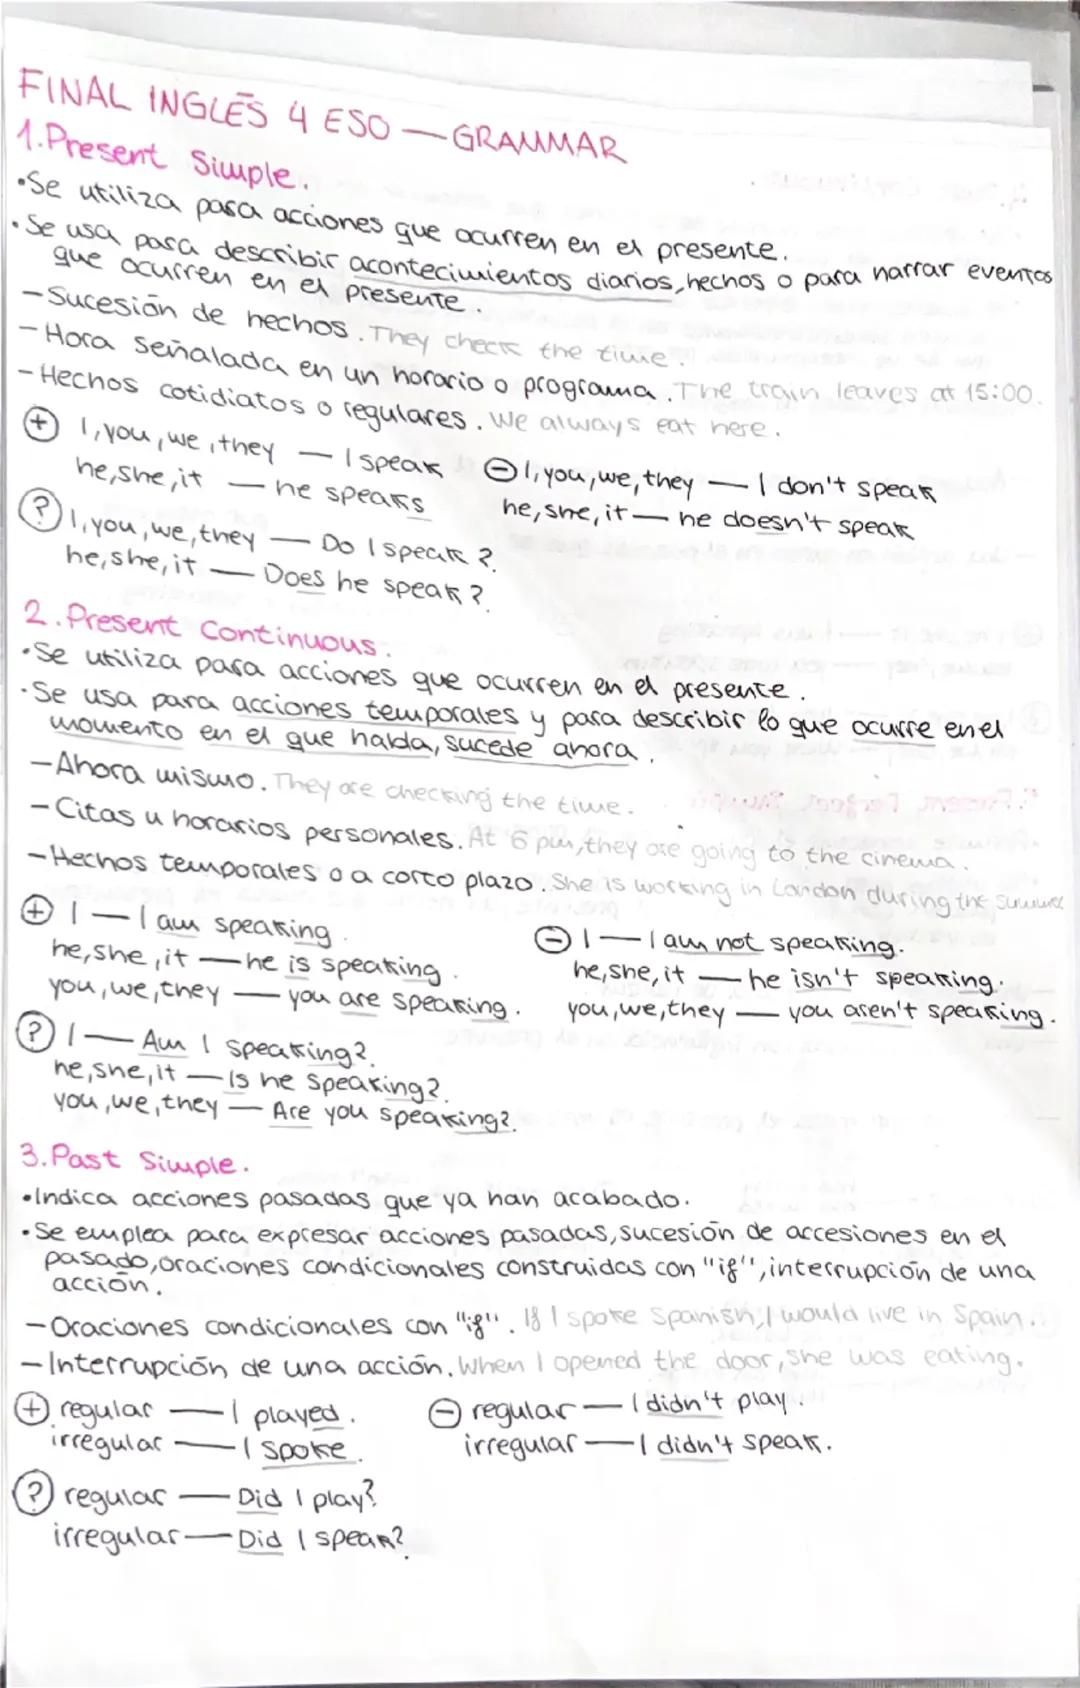 FINAL INGLÉS 4 ESO — GRAMMAR
1. Present Simple.
•Se utiliza para acciones que ocurren en el presente.
•Se usa para describir acontecimientos diarios, hechos o para narrar eventos
que ocurren en el presente.
—Sucesión de hechos. They check the time.
—Hora señalada en un horario o programa. The train leaves at 15:00.
—Hechos cotidiatos o regulares. We always eat here.
+ I, you, we, they — I speak - I, you, we, they — I don't speak
he, she, it — he speaks he, she, it — he doesn't speak
? I, you, we, they — Do I speak?
he, she, it — Does he speak?
2. Present Continuous.
•Se utiliza para acciones que ocurren en el presente.
•Se usa para acciones temporales y para describir lo que ocurre en el
momento en el que habla, sucede ahora.
—Ahora mismo. They are checking the time.
—Citas u horarios personales. At 6 pm, they are going to the cinema.
—Hechos temporales o a corto plazo. She is working in London during the summer
+ I — I am speaking. - I — I am not speaking.
he, she, it — he is speaking. he, she, it — he isn't speaking.
you, we, they — you are speaking. you, we, they — you aren't speaking.
? I — Am I speaking?
he, she, it — Is he speaking?
you, we, they — Are you speaking?
3. Past Simple.
•Indica acciones pasadas que ya han acabado.
•Se emplea para expresar acciones pasadas, sucesión de accesiones en el
pasado, oraciones condicionales construidas con "if", interrupción de una
acción.
—Oraciones condicionales con "if". If I spoke Spanish, I would live in Spain.
—Interrupción de una acción. When I opened the door, she was eating.
+ regular — I played. - regular — I didn't play.
irregular — I spoke. irregular — I didn't speak.
? regular — Did I play?
irregular — Did I speak?